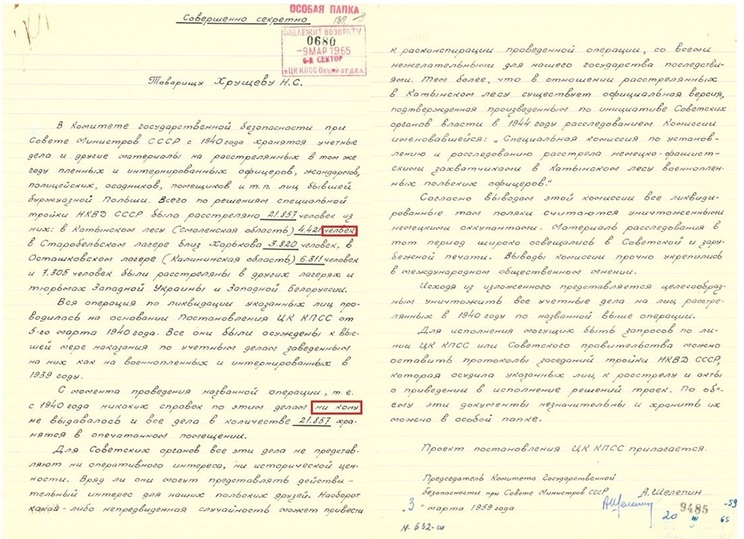 Совершенно секретно
ОСОБАЯ ПАПКА
ПОДЛЕЖИТ ВОЗВРАТУ
0680
-9 МАР 1965
6-й СЕКТОР
ЦК КПСС
отдел
Товарищу Хрущеву Н.С.
В Комитете государственной безопасности при
Совете Министров СССР с 1940 года хранятся учетные
дела и другие материалы на расстрелянных в том же
году пленных и интернированных офицеров, жандармов,
полицейских, осадников, помещиков и т.п. лиц бывшей
буржуазной Польши. Всего по решениям специальной
тройки НКВД СССР было расстреляно 21.857 человек из
них: в Катынском лесу (Смоленская область) 4.421 человек
в Старобельском лагере близ Харькова 3.820 человек, в
Осташковском лагере (Калининская область) 6.311 человек
и 7.305 человек были расстреляны в других лагерях и
тюрьмах Западной Украины и Западной Белоруссии.
Вся операция по ликвидации указанных лиц про-
водилась на основании Постановления ЦК КПСС от
5-го марта 1940 года. Все они были осуждены к выс-
шей мере наказания по учетным делам заведенным
на них как на военнопленных и интернированных в
1939 году.
С момента проведения названной операции, т.е.
с 1940 года никаких справок по этим делам ни кому
не выдавалось и все дела в количестве 21.857 хра-
нятся в опечатанном помещении.
Для Советских органов все эти дела не предста-
вляют ни оперативного интереса, ни исторической цен-
ности. Вряд ли они могут представлять действи-
тельный интерес для наших польских друзей. Наоборот
какая-либо непредвиденная случайность может привести
к расконспирации проведенной операции, со всеми
нежелательными для нашего государства последстви-
ями. Тем более, что в отношении расстрелянных
в Катынском лесу существует официальная версия,
подтвержденная произведенным по инициативе Советских
органов власти в 1944 году расследованием Комиссии
именовавшейся: „Специальная комиссия по установ-
лению и расследованию расстрела немецко-фашист-
скими захватчиками в Катынском лесу военноплен-
ных польских офицеров."
Согласно выводам этой комиссии все ликвиди-
рованные там поляки считаются уничтоженными
немецкими оккупантами. Материалы расследования в
тот период широко освещались в Советской и зару-
бежной печати. Выводы комиссии прочно укрепились
в международном общественном мнении.
Исходя из изложенного представляется целесообраз-
ным уничтожить все учетные дела на лиц расстре-
лянных в 1940 году по названной выше операции.
Для исполнения могущих быть запросов по ли-
нии ЦК КПСС или Советского правительства можно
оставить протоколы заседаний тройки НКВД СССР,
которая осудила указанных лиц к расстрелу и акты
о приведении в исполнение решений троек. По объ-
ему эти документы незначительны и хранить их
можно в особой папке.
Проект постановления ЦК КПСС прилагается.
Председатель Комитета Государственной
безопасности при Совете Министров СССР А. Шелепин
„3" марта 1959 года
9485
20 III 65
-59
N-632-ш